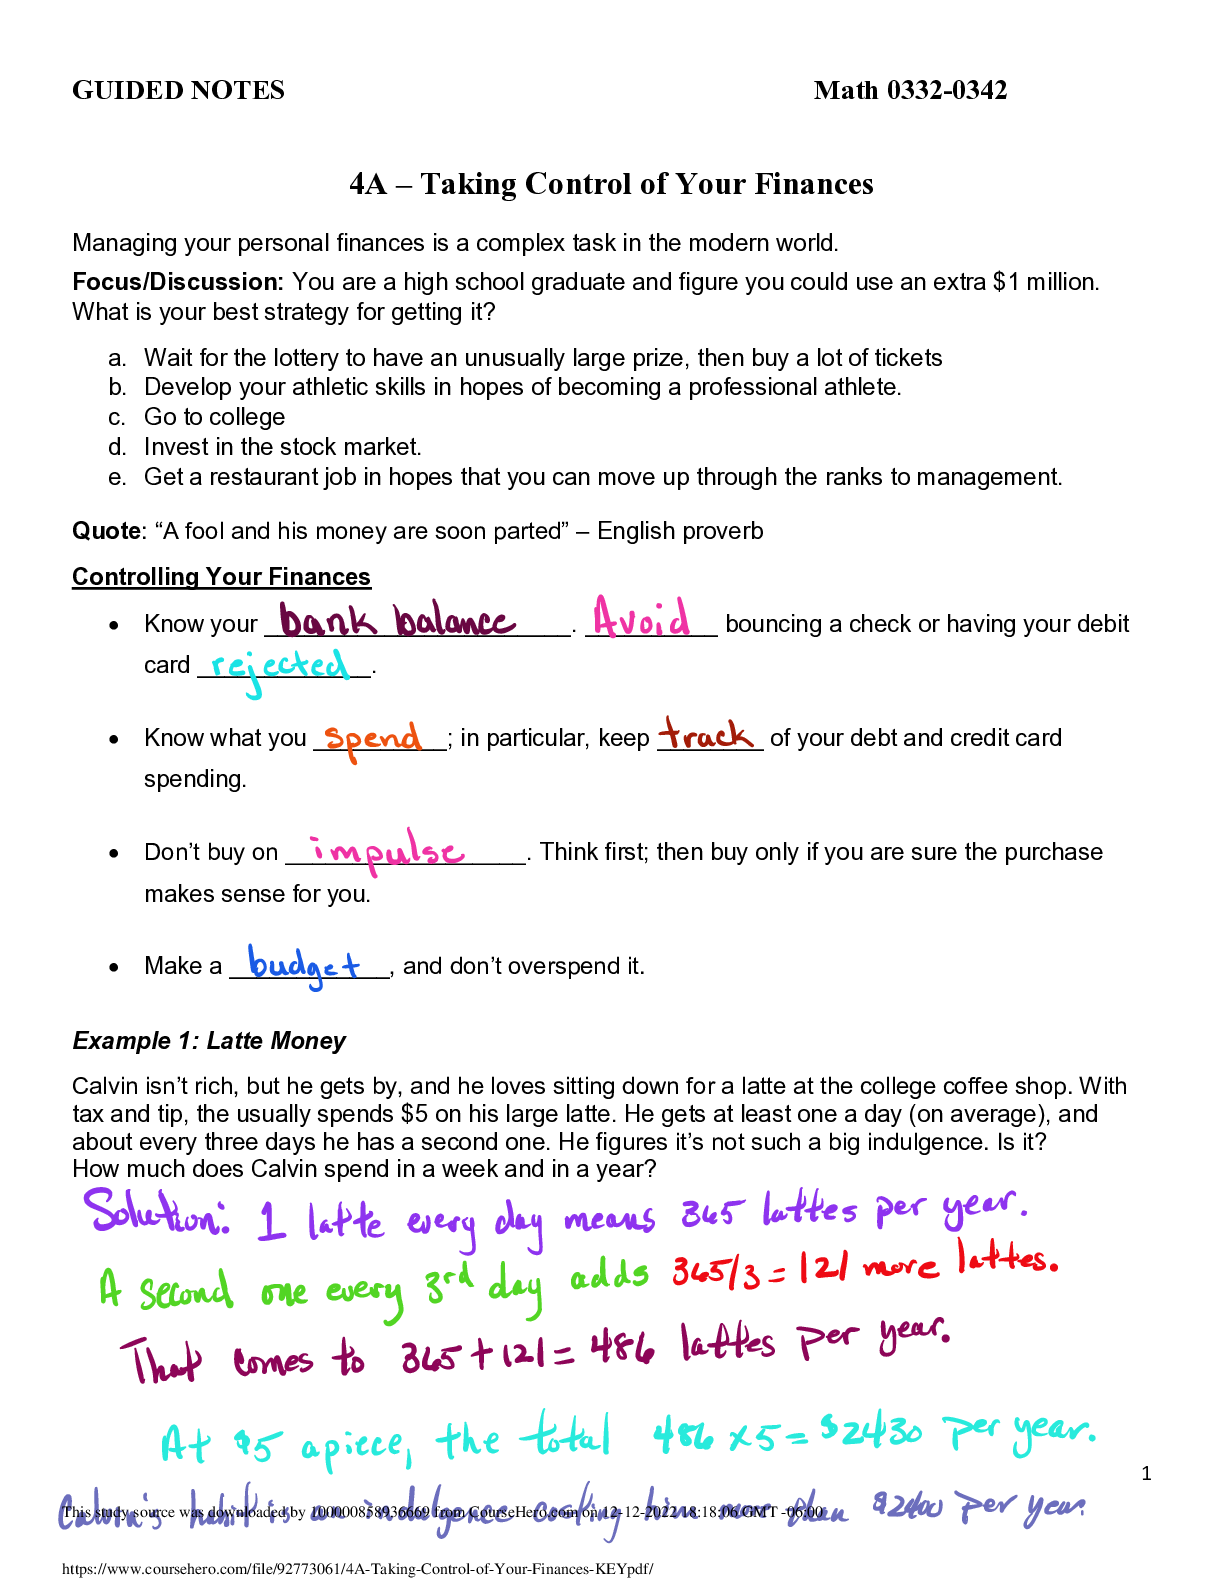 GUIDED NOTES Math 0332-0342
4A – Taking Control of Your Finances
Managing your personal finances is a complex task in the modern world.
Focus/Discussion: You are a high school graduate and figure you could use an extra $1 million.
What is your best strategy for getting it?
a. Wait for the lottery to have an unusually large prize, then buy a lot of tickets
b. Develop your athletic skills in hopes of becoming a professional athlete.
c. Go to college
d. Invest in the stock market.
e. Get a restaurant job in hopes that you can move up through the ranks to management.
Quote: “A fool and his money are soon parted” – English proverb
Controlling Your Finances
• Know your bank balance. Avoid bouncing a check or having your debit
card rejected.
• Know what you spend; in particular, keep track of your debt and credit card
spending.
• Don’t buy on impulse. Think first; then buy only if you are sure the purchase
makes sense for you.
• Make a budget, and don’t overspend it.
Example 1: Latte Money
Calvin isn’t rich, but he gets by, and he loves sitting down for a latte at the college coffee shop. With
tax and tip, the usually spends $5 on his large latte. He gets at least one a day (on average), and
about every three days he has a second one. He figures it’s not such a big indulgence. Is it?
How much does Calvin spend in a week and in a year?
Solution: 1 latte every day means 365 lattes per year.
A second one every 3rd day adds 365/3 = 121 more lattes.
That comes to 365 + 121 = 486 lattes per year.
At $5 apiece, the total 486 x 5 = $2430 per year.
1
Calvin's habit is an indulgence costing him more than $2400 per year.
This study source was downloaded by 100000858936669 from CourseHero.com on 12-12-2022 18:18:06 GMT -06:00
https://www.coursehero.com/file/92773061/4A-Taking-Control-of-Your-Finances-KEYpdf/